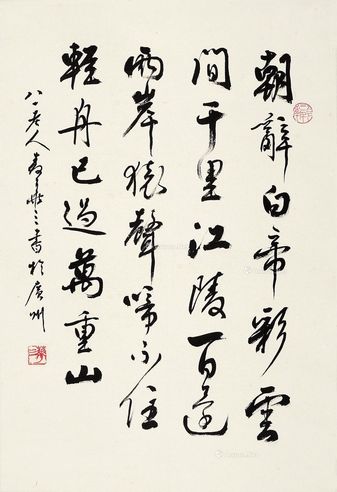 朝辭白帝彩雲
間千里江陵一日還
兩岸猿聲啼不住
輕舟已過萬重山
八一老人麥華三書於廣州